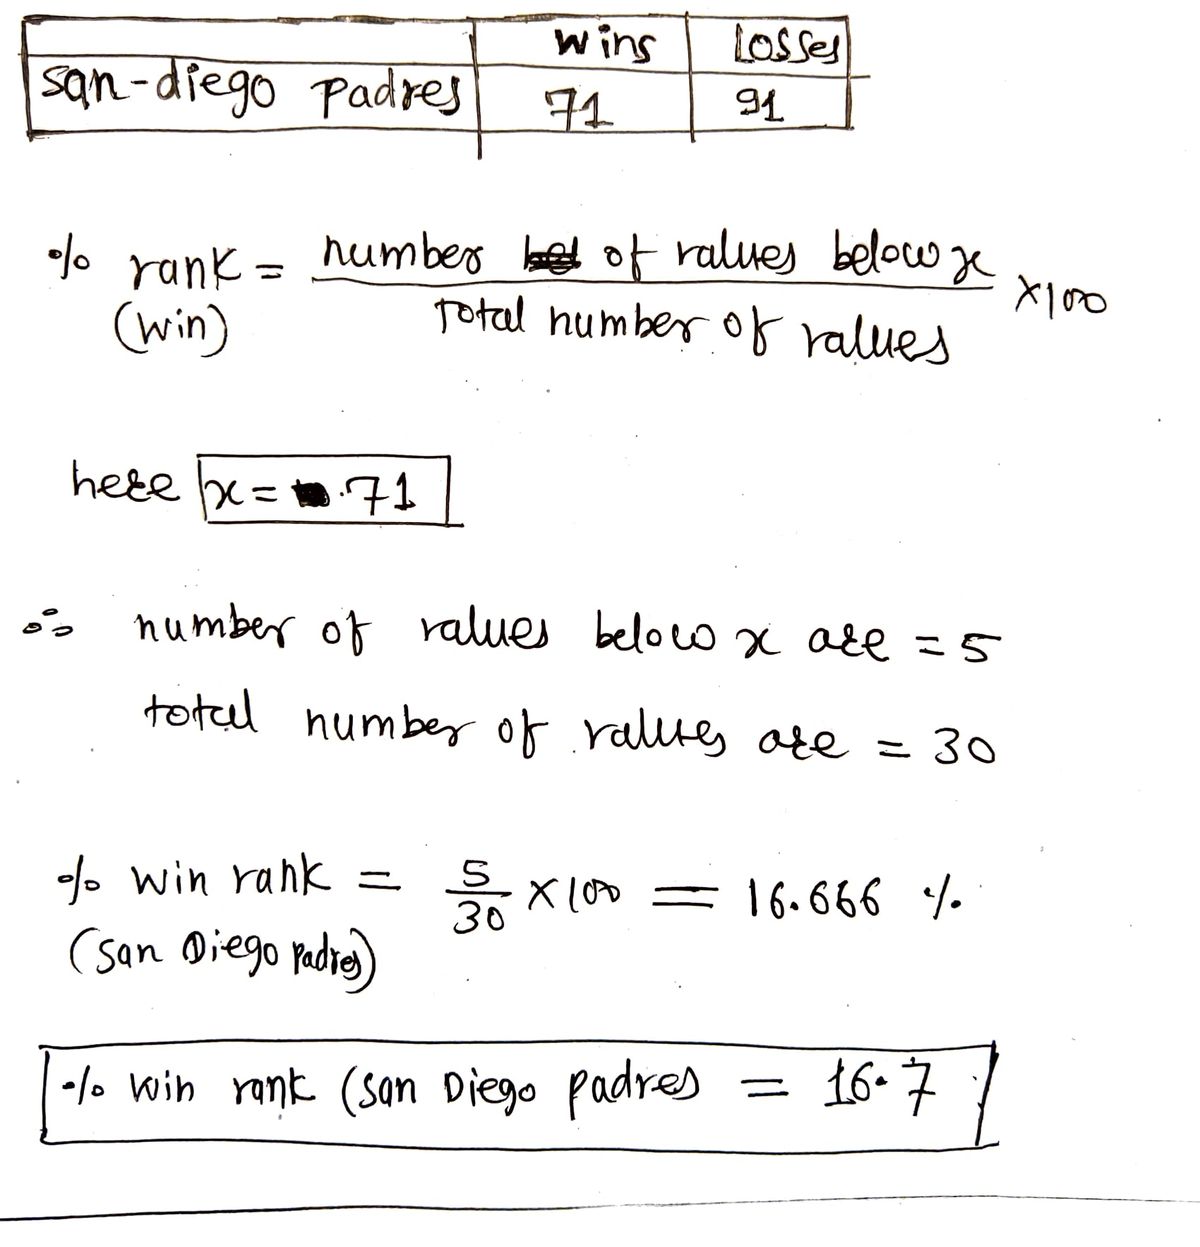 wins Losses
san-diego padres 71 91
% rank = number of values below x × 100
(win) Total number of values
here x = 71
∴ number of values below x are = 5
total number of values are = 30
% win rank = 5/30 × 100 = 16.666 %
(san Diego Padres)
% win rank (san Diego padres = 16.7